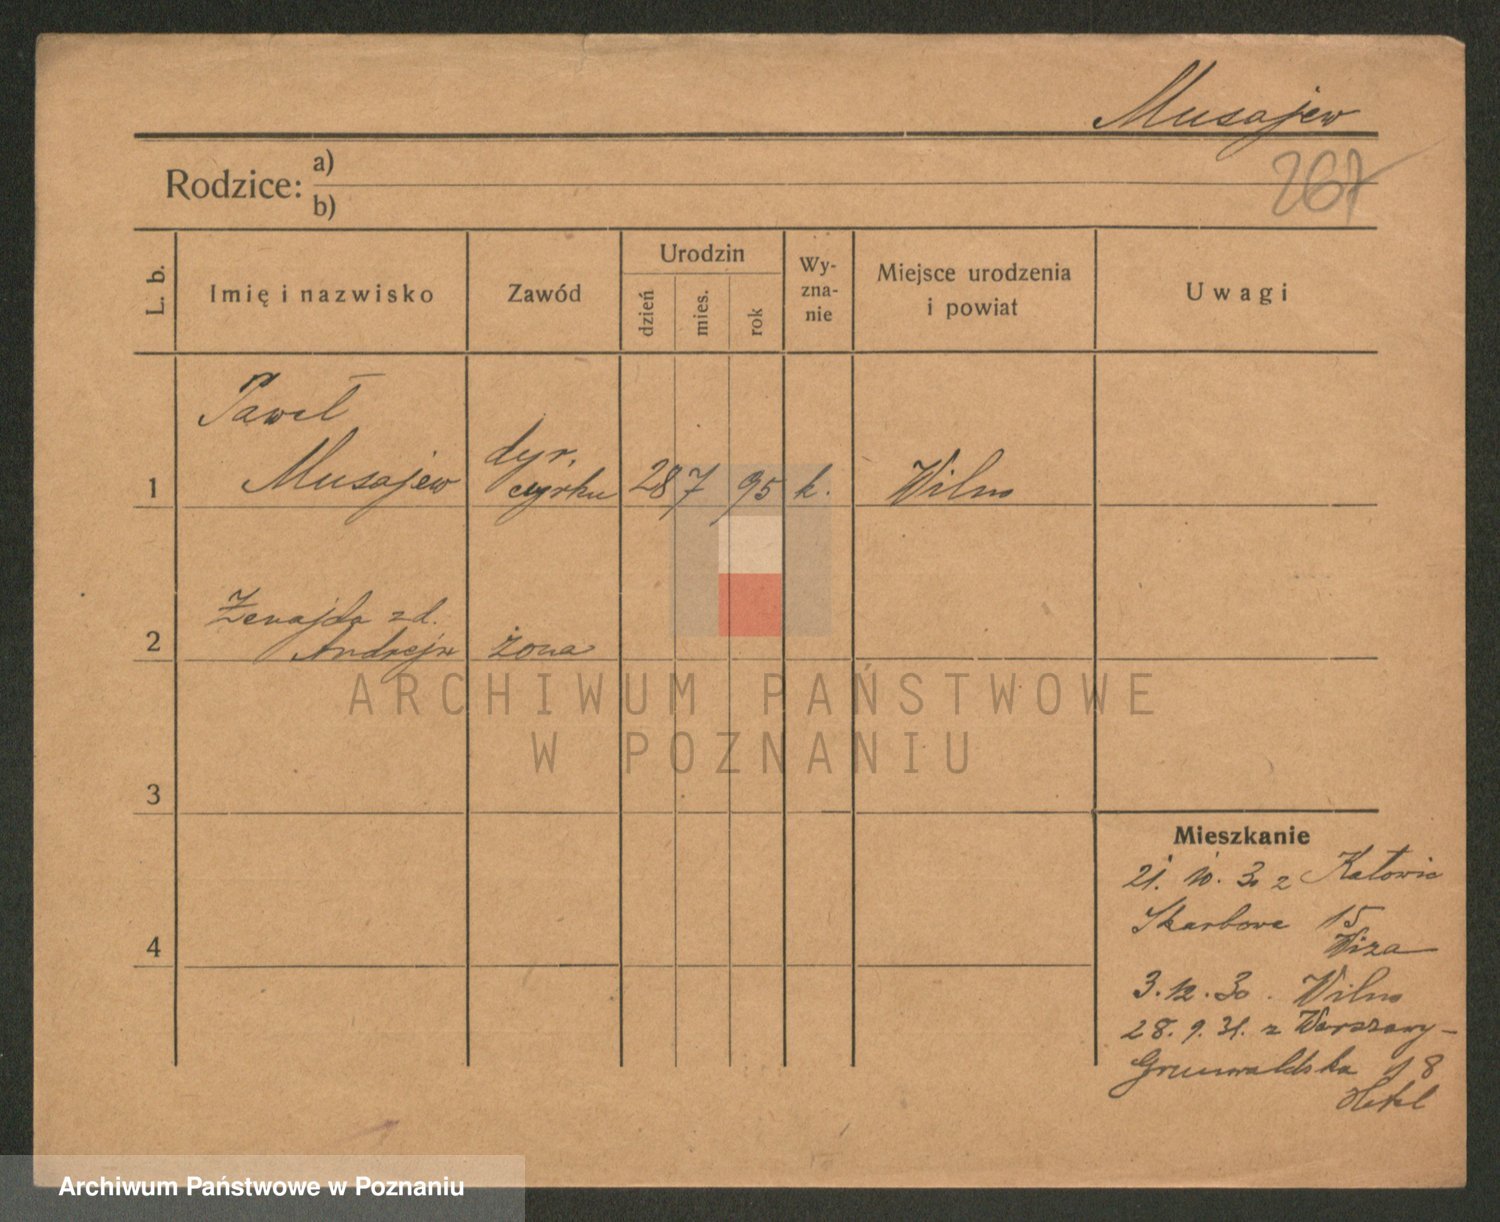 Musajew
267
Rodzice: a)
b)
L. b.
Imię i nazwisko
Zawód
Urodzin
dzień
mies.
rok
Wy-
zna-
nie
Miejsce urodzenia
i powiat
Uwagi
Paweł
Musajew
dyr.
cyrku
1
28 7 95 k. Wilno
Zenajda zd.
2
żona
3
4
Mieszkanie
21. 10. 30 z Katowic
Skarbowa 15
3. 12. 30. Wilno
28. 9. 31. z Warszawy-
Grunwaldska 18
Hotel
ARCHIWUM PAŃSTWOWE
W POZNANIU
Archiwum Państwowe w Poznaniu